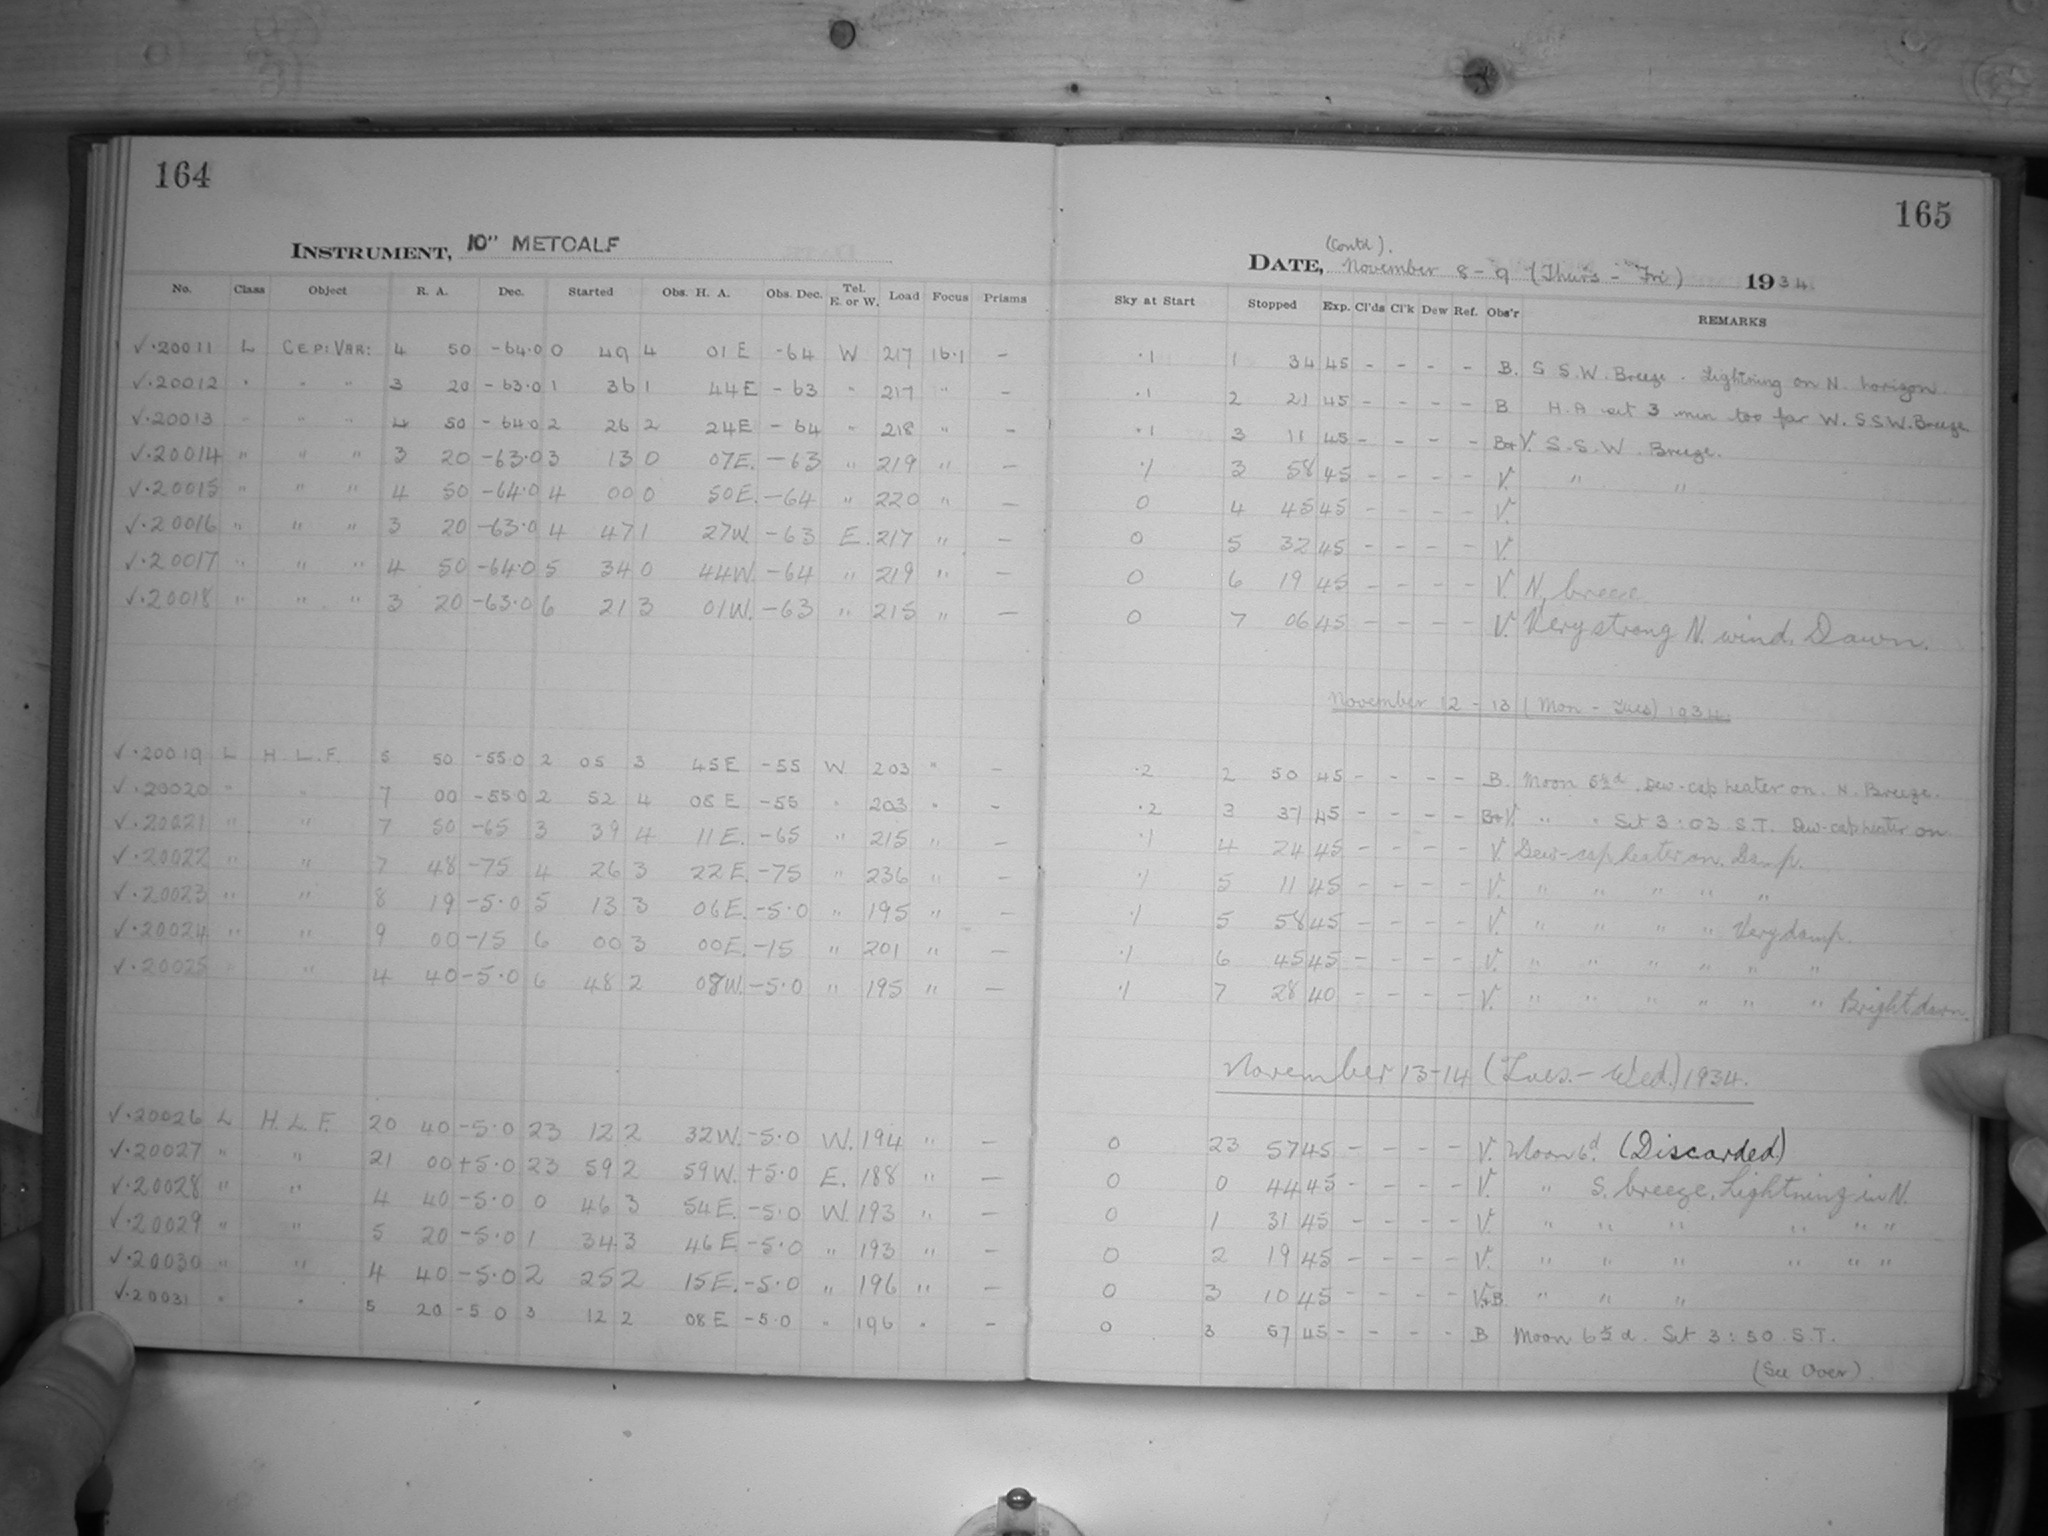 164
INSTRUMENT, 10" METCALF
No. Class Object R. A. Dec. Started Obs. H. A. Obs. Dec. Tel. E. or W. Load Focus Prisms
√·20011 L CEP: VAR: 4 50 -64·0 0 49 4 01 E -64 W 217 16·1 -
√·20012 " " " 3 20 -63·0 1 36 1 44 E -63 " 217 " -
√·20013 " " " 4 50 -64·0 2 26 2 24E -64 " 218 " -
√·20014 " " " 3 20 -63·0 3 13 0 07E. -63 " 219 " -
√·20015 " " " 4 50 -64·0 4 00 0 50E. -64 " 220 " -
√·20016 " " " 3 20 -63·0 4 47 1 27W. -63 E. 217 " -
√·20017 " " " 4 50 -64·0 5 34 0 44W. -64 " 219 " -
√·20018 " " " 3 20 -63·0 6 21 3 01W. -63 " 215 " -
√·20019 L H. L. F. 5 50 -55·0 2 05 3 45 E -55 W 203 " -
√·20020 " " 7 00 -55·0 2 52 4 08 E -55 " 203 " -
√·20021 " " 7 50 -65 3 39 4 11 E. -65 " 215 " -
√·20022 " " 7 48 -75 4 26 3 22 E. -75 " 236 " -
√·20023 " " 8 19 -5·0 5 13 3 06E. -5·0 " 195 " -
√·20024 " " 9 00 -15 6 00 3 00E. -15 " 201 " -
√·20025 " " 4 40 -5·0 6 48 2 08W. -5·0 " 195 " -
√·20026 L H. L. F. 20 40 -5·0 23 12 2 32W. -5·0 W. 194 " -
√·20027 " " 21 00 +5·0 23 59 2 59W. +5·0 E. 188 " -
√·20028 " " 4 40 -5·0 0 46 3 54E. -5·0 W. 193 " -
√·20029 " " 5 20 -5·0 1 34 3 46E -5·0 " 193 " -
√·20030 " " 4 40 -5·0 2 25 2 15E. -5·0 " 196 " -
√·20031 " " 5 20 -5 0 3 12 2 08 E -5·0 " 196 " -
165
(Contd).
DATE, November 8-9 (Thurs - Fri) 1934
Sky at Start Stopped Exp. Cl'ds Cl'k Dew Ref. Obs'r REMARKS
·1 1 34 45 - - - - B. S S.W. Breeze. Lightning on N. horizon.
·1 2 21 45 - - - - B H.A set 3 min too far W. S S.W. Breeze.
·1 3 11 45 - - - - B+V. S. S. W. Breeze.
·1 3 58 45 - - - - V. " "
0 4 45 45 - - - - V.
0 5 32 45 - - - - V.
0 6 19 45 - - - - V. N. breeze
0 7 06 45 - - - - V. Very strong N. wind. Dawn.
November 12 - 13 (Mon - Tues) 1934.
·2 2 50 45 - - - - B. Moon 5½d. Dew-cap heater on. N. Breeze.
·2 3 37 45 - - - - B+V. " " Set 3:03 S.T. Dew-cap heater on
·1 4 24 45 - - - - V. Dew-cap heater on. Damp.
·1 5 11 45 - - - - V. " " " " "
·1 5 58 45 - - - - V. " " " " Very damp.
·1 6 45 45 - - - - V. " " " " " "
·1 7 28 40 - - - - V. " " " " " " Bright dawn.
November 13-14 (Tues. - Wed.) 1934.
0 23 57 45 - - - - V. Moon 6d. (Discarded)
0 0 44 45 - - - - V. " S. breeze. Lightning in N.
0 1 31 45 - - - - V. " " " " " "
0 2 19 45 - - - - V. " " " " " "
0 3 10 45 - - - - V.+B. " " "
0 3 57 45 - - - - B Moon 6½ d. Set 3:50 S.T.
(See Over).